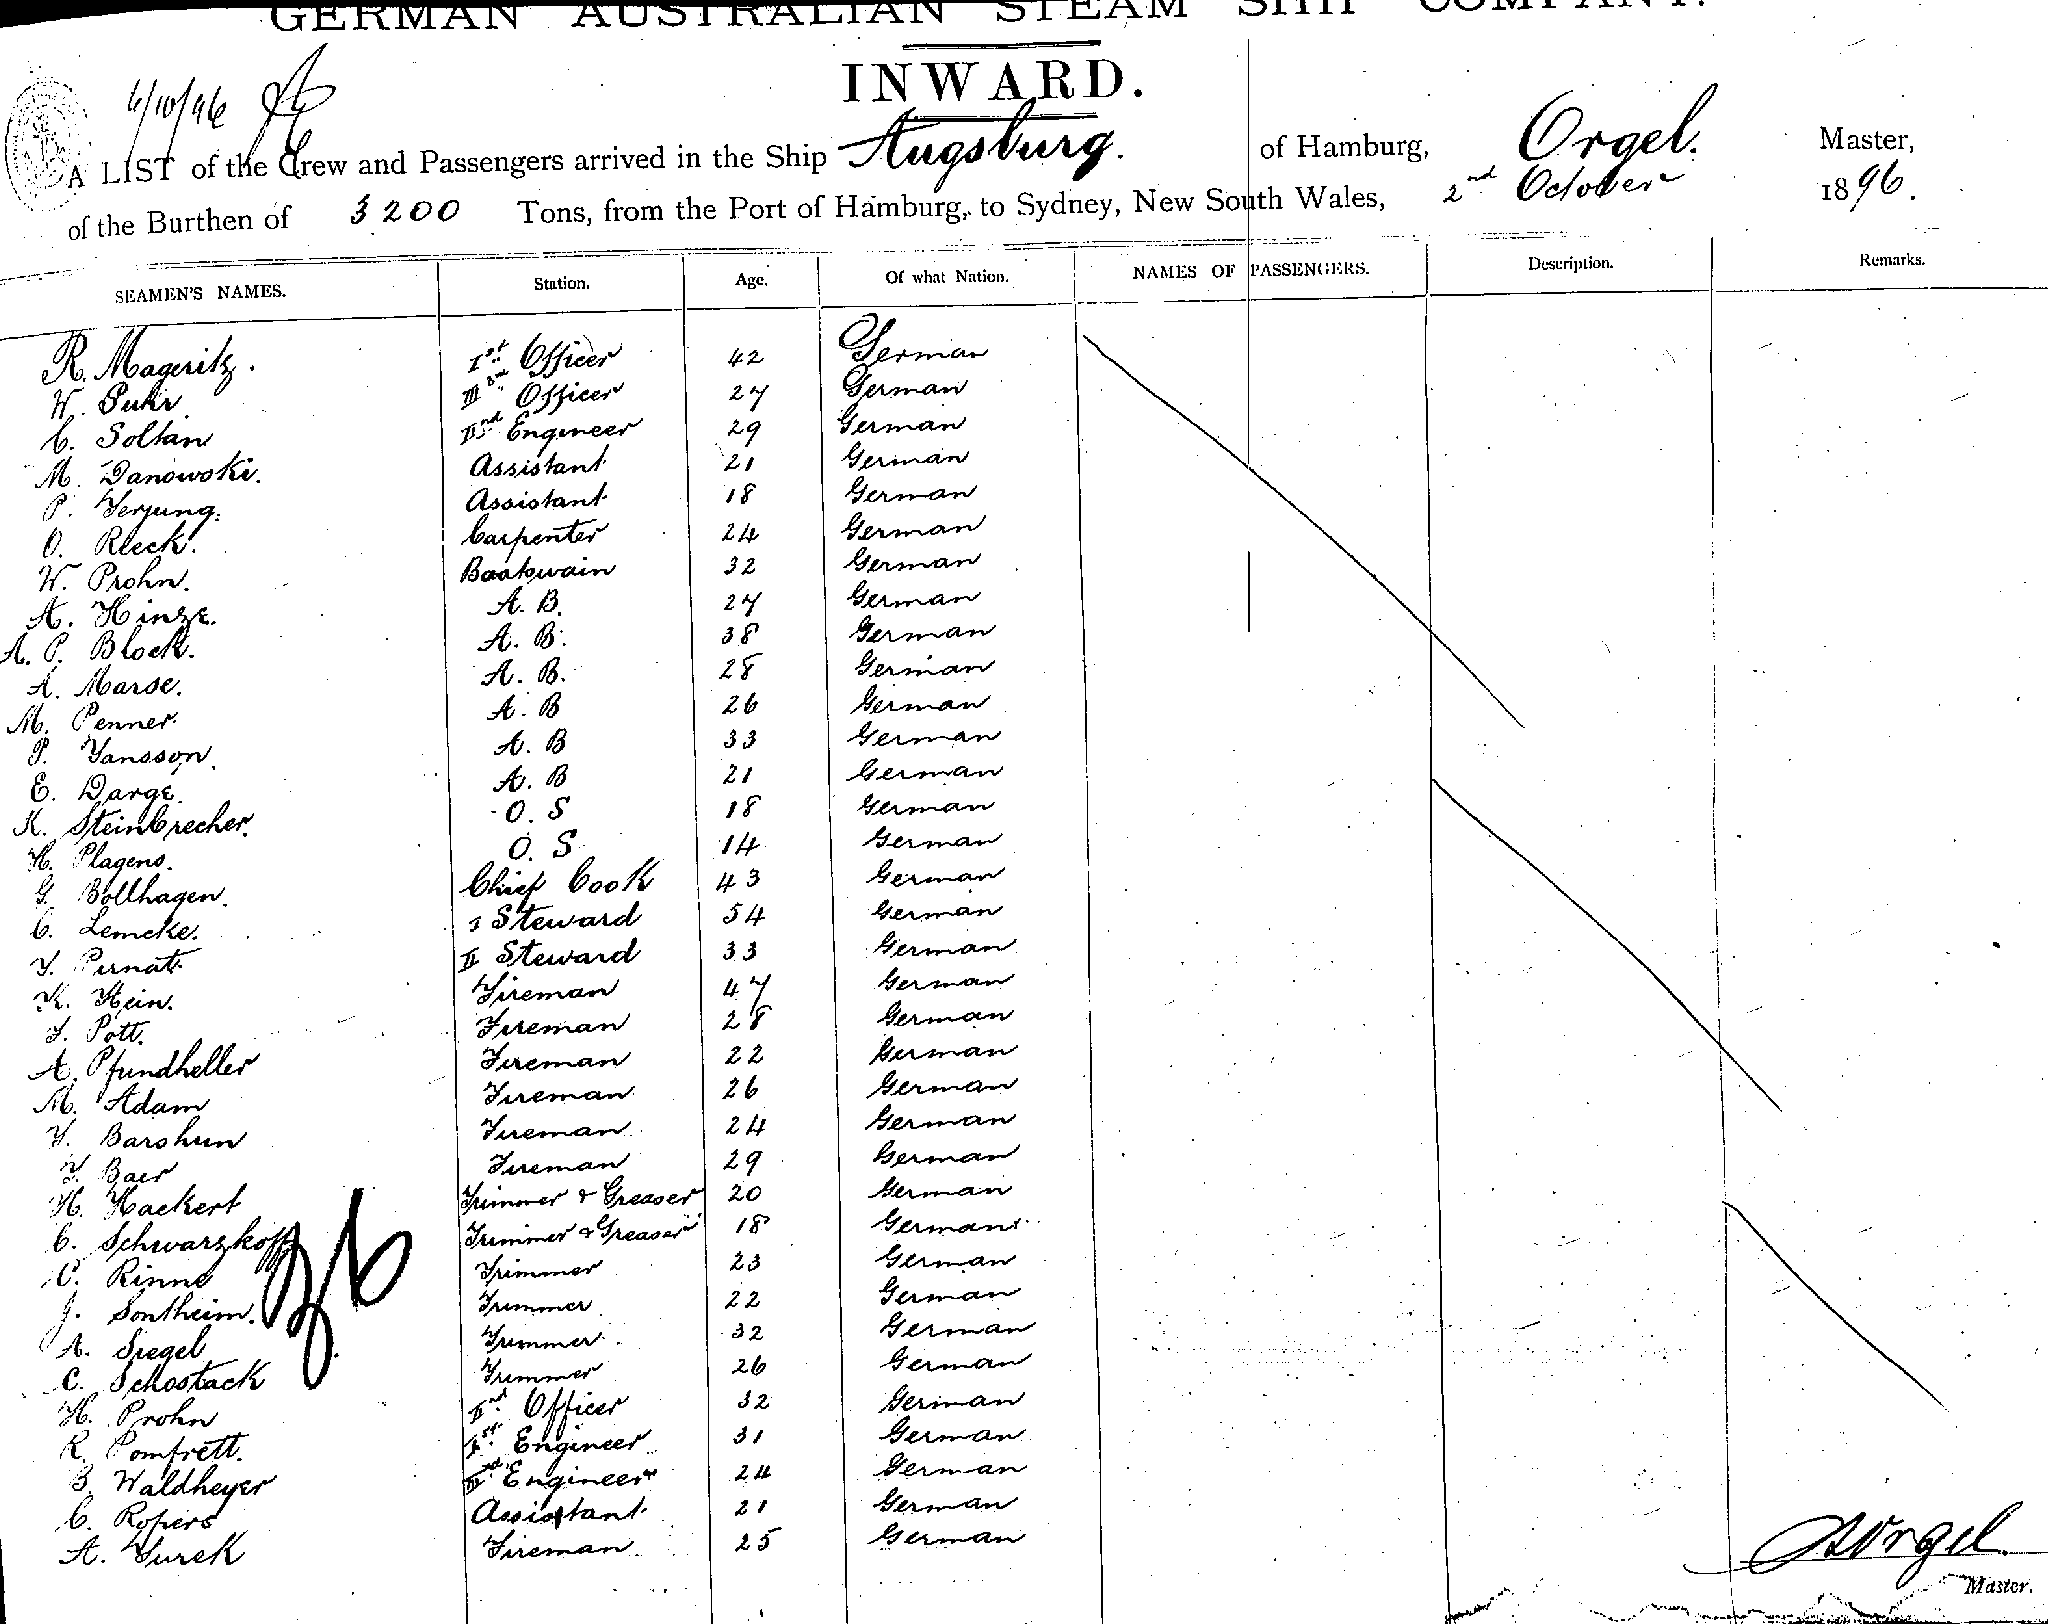 GERMAN AUSTRALIAN STEAM SHIP COMPANY.
INWARD.
6/10/96
A LIST of the Crew and Passengers arrived in the Ship Augsburg. of Hamburg, Orgel. Master,
of the Burthen of 3200 Tons, from the Port of Hamburg, to Sydney, New South Wales, 2nd October 1896.
SEAMEN'S NAMES. Station. Age. Of what Nation. NAMES OF PASSENGERS. Description. Remarks.
R. Mageritz. Ist Officer 42 German
W. Puhr III Officer 27 German
C. Soltan IInd Engineer 29 German
M. Danowski. Assistant 21 German
P. Yerjung. Assistant 18 German
O. Reeck. Carpenter 24 German
W. Prohn. Boatswain 32 German
A. Hinze. A. B. 27 German
A. P. Block. A. B. 38 German
A. Marse. A. B. 28 German
M. Penner. A. B 26 German
P. Yansson. A. B 33 German
E. Darge. A. B 21 German
K. Steinbrecher. O. S 18 German
H. Plagens. O. S 14 German
G. Bollhagen. Chief Cook 43 German
C. Lemcke. I Steward 54 German
Y. Pernat. II Steward 33 German
K. Hein. Fireman 47 German
F. Pott. Fireman 28 German
A. Pfundheller Fireman 22 German
M. Adam Fireman 26 German
Y. Barshun Fireman 24 German
F. Baer Fireman 29 German
H. Hackert Trimmer & Greaser 20 German
C. Schwarzkopf Trimmer & Greaser 18 German
C. Rinne Trimmer 23 German
J. Sontheim. Trimmer 22 German
A. Siegel Trimmer 32 German
C. Schostack Trimmer 26 German
36
H. Prohn IInd Officer 32 German
R. Pomfrett. Ist Engineer 31 German
B. Waldheyer III Engineer 24 German
C. Ropers Assistant 21 German
A. Yurek Fireman 25 German
Orgel.
Master.